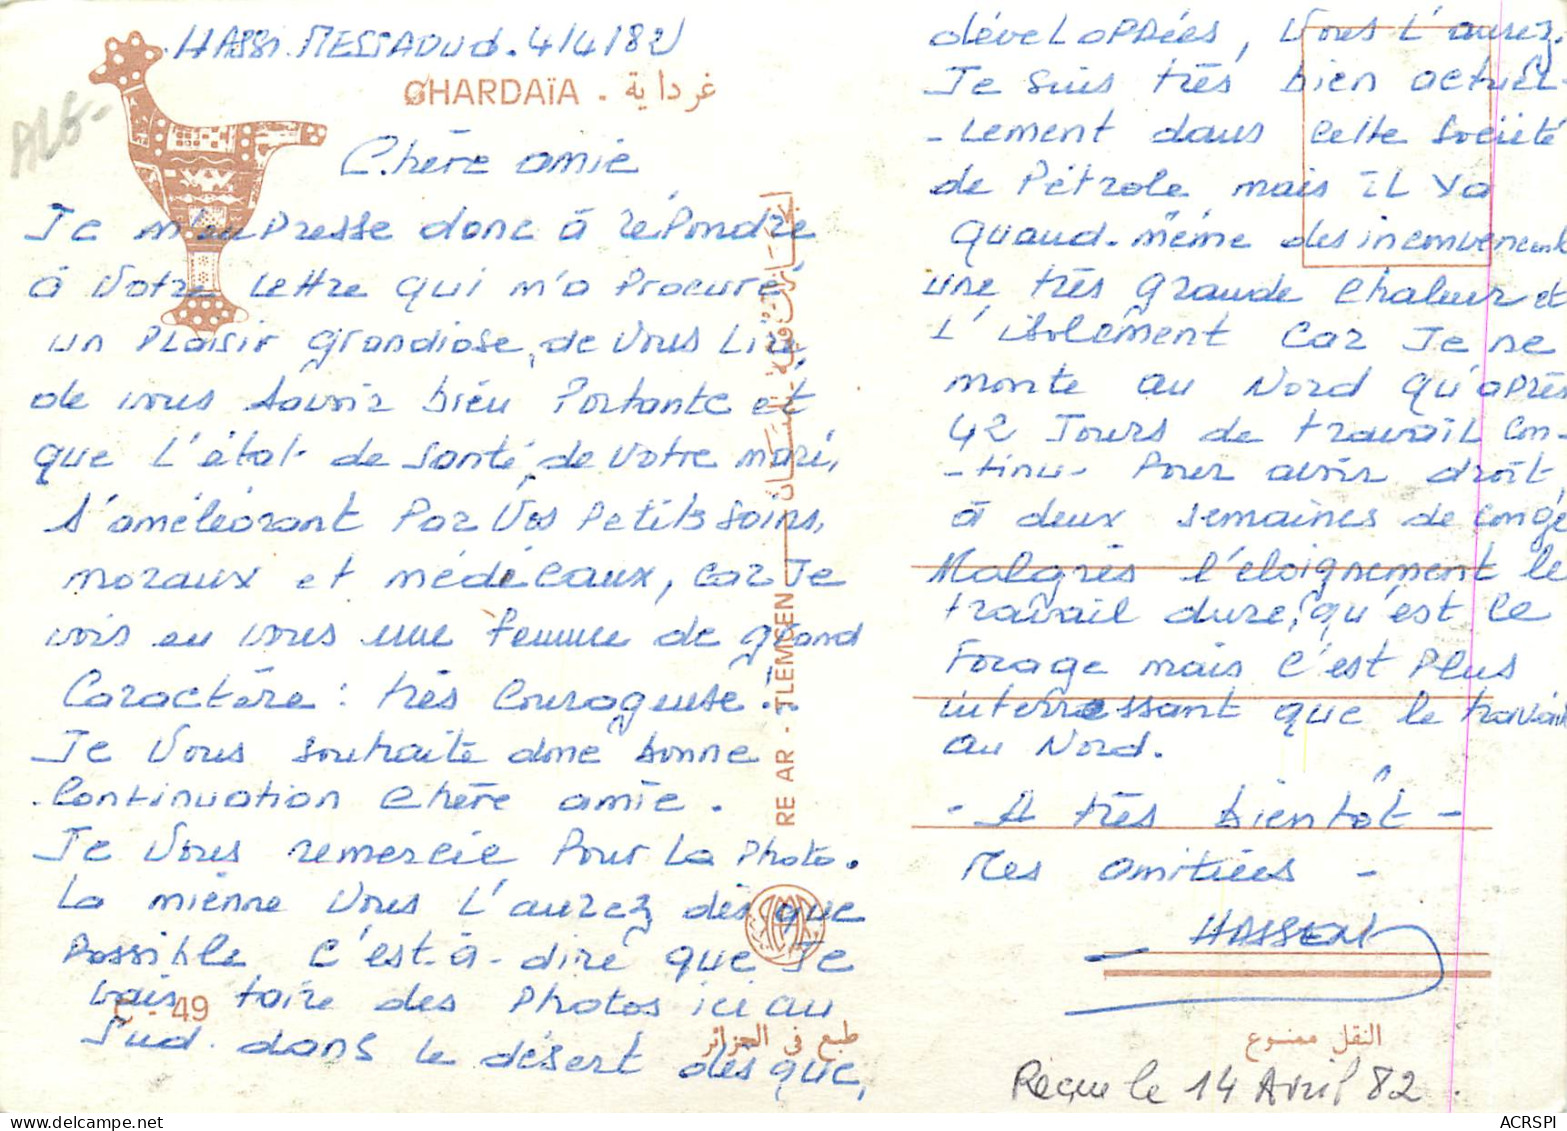 HASSI.MESSAOUD. 4/4/82
GHARDAÏA . غرداية
ALG-
Chère amie
Je m'empresse donc à répondre
à Votre lettre qui m'a Procuré
un Plaisir grandiose, de Vous Lire
de vous savoir bien Portante et
que L'état de santé, de Votre mari,
s'améléorant Par Vos Petits soins,
moraux et médicaux, car Je
vois en vous une femme de grand
Caractère : très Courageuse..
Je Vous souhaite donc bonne
Continuation Chère amie.
Je Vous remercie Pour La Photo.
La mienne Vous L'aurez dès que
Possible c'est-à-dire que Je
vais faire des Photos ici au
Sud. dans le désert dès que,
49
طبع في الجزائر
RE AR - TLEMCEN
développées, Vous L'aurez.
Je suis très bien actuel-
-lement dans cette société
de Pétrole mais il ya
quand-même des inconvenients
une très grande chaleur et
L'isolement car Je ne
monte au Nord qu'après
42 Jours de travail con-
-tinu- Pour avoir droit
à deux semaines de congé
Malgrès l'éloignement le
travail dure, qu'est le
Forage mais c'est Plus
interressant que le travail
au Nord.
- A très bientôt -
Mes amitiées -
HASSEN
النقل ممنوع
Reçue le 14 Avril 82.
ACRSPI